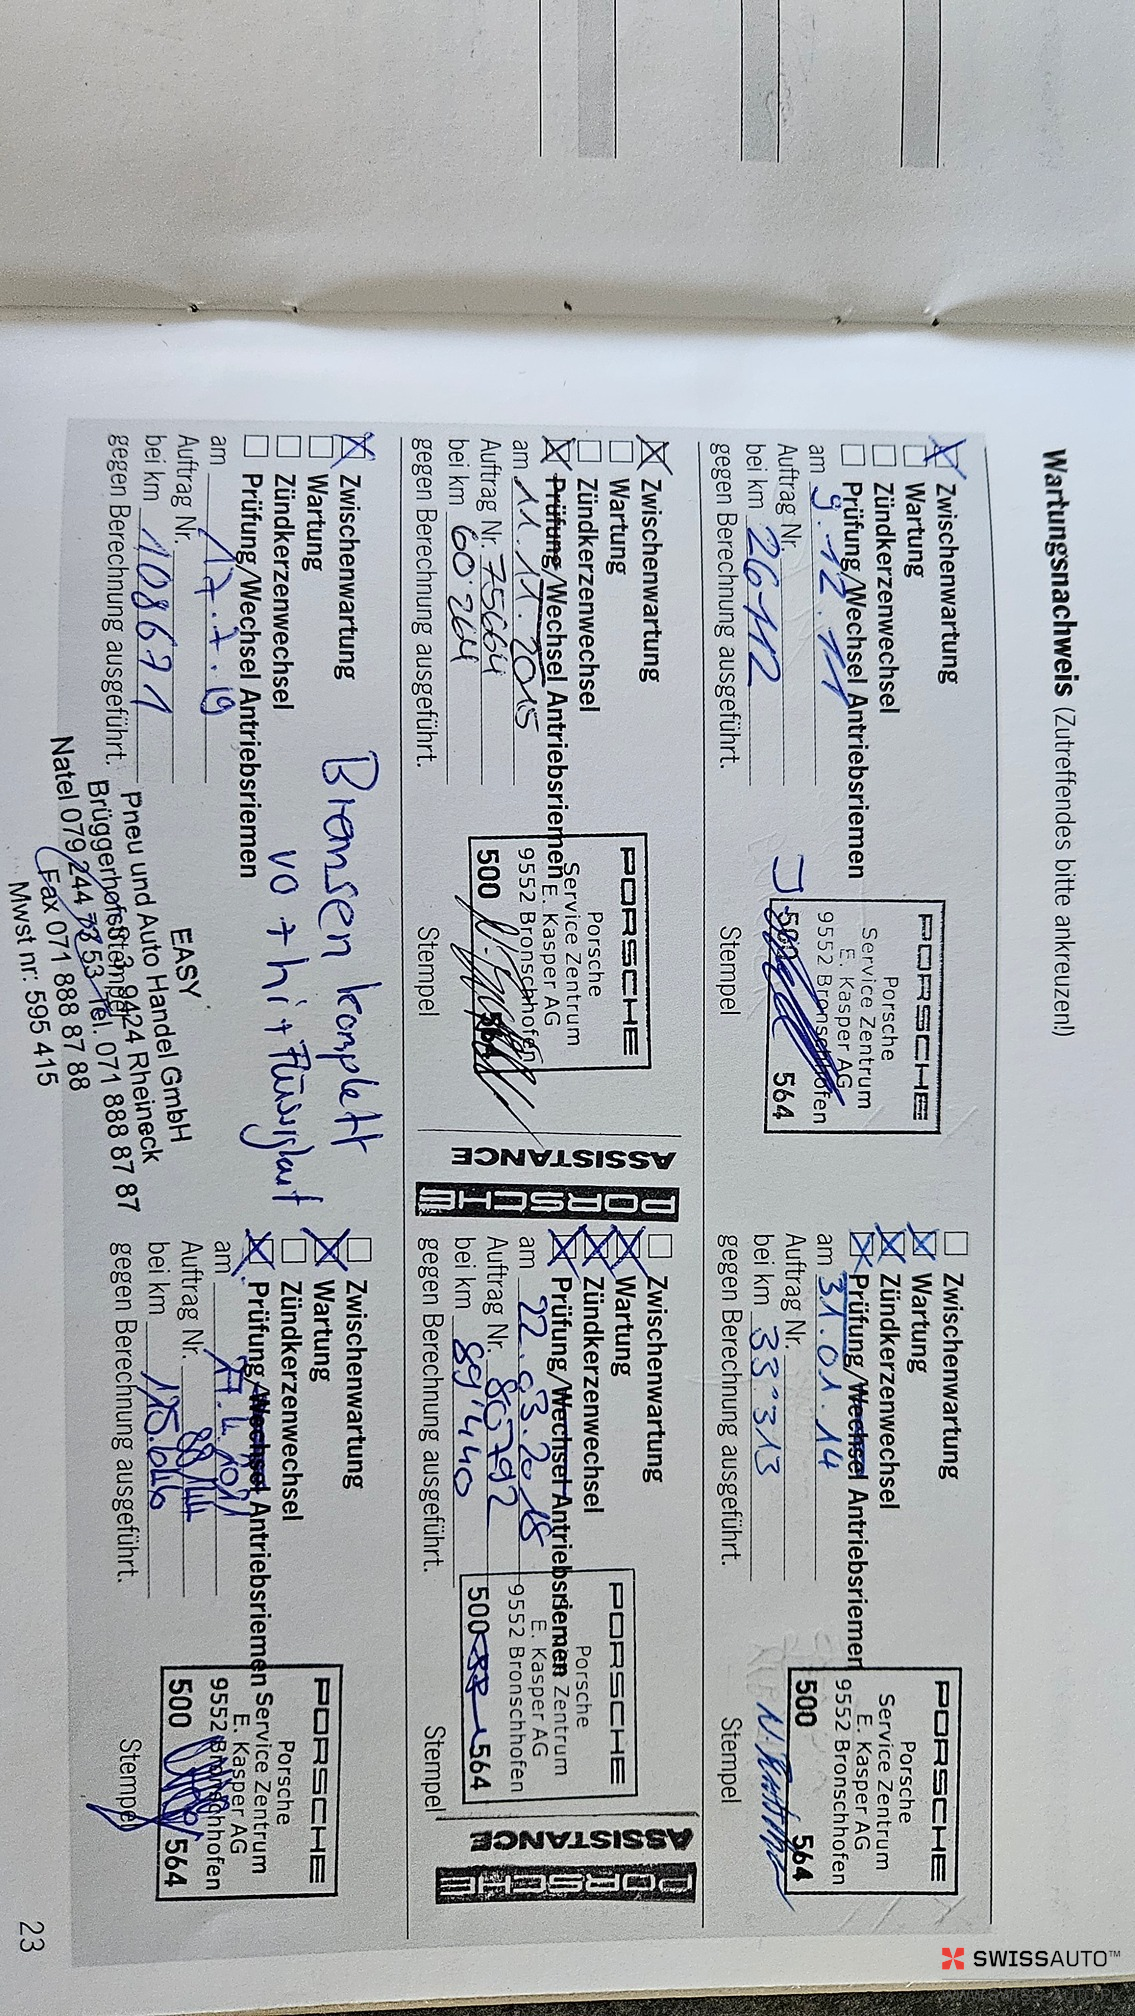 Wartungsnachweis (Zutreffendes bitte ankreuzen!)
Zwischenwartung
Wartung
Zündkerzenwechsel
Prüfung/Wechsel Antriebsriemen
am 9.12.11
Auftrag Nr.
bei km 26112
gegen Berechnung ausgeführt.
PORSCHE
Porsche
Service Zentrum
E. Kasper AG
9552 Bronschhofen
500 564
Stempel
Zwischenwartung
Wartung
Zündkerzenwechsel
Prüfung/Wechsel Antriebsriemen
am 31.01.14
Auftrag Nr.
bei km 33'313
gegen Berechnung ausgeführt.
PORSCHE
Porsche
Service Zentrum
E. Kasper AG
9552 Bronschhofen
500 564
Stempel
Zwischenwartung
Wartung
Zündkerzenwechsel
Prüfung/Wechsel Antriebsriemen
am 11.11.2015
Auftrag Nr. 75664
bei km 60'264
gegen Berechnung ausgeführt.
PORSCHE
Porsche
Service Zentrum
E. Kasper AG
9552 Bronschhofen
500 564
Stempel
ASSISTANCE
PORSCHE
Zwischenwartung
Wartung
Zündkerzenwechsel
Prüfung/Wechsel Antriebsriemen
am 22.03.2018
Auftrag Nr. 80792
bei km 89'440
gegen Berechnung ausgeführt.
PORSCHE
Porsche
Service Zentrum
E. Kasper AG
9552 Bronschhofen
500 564
Stempel
ASSISTANCE
PORSCHE
Zwischenwartung
Wartung
Zündkerzenwechsel
Prüfung/Wechsel Antriebsriemen
am 17.7.19
Auftrag Nr.
bei km 108671
gegen Berechnung ausgeführt.
Bremsen komplett
vo + hi +
EASY
Pneu und Auto Handel GmbH
Brüggerhofstr. 3, 9424 Rheineck
Natel 079 244 73 53 Tel. 071 888 87 87
Fax 071 888 87 88
Mwst nr: 595 415
Stempel
Zwischenwartung
Wartung
Zündkerzenwechsel
Prüfung/Wechsel Antriebsriemen
am
Auftrag Nr.
bei km
gegen Berechnung ausgeführt.
PORSCHE
Porsche
Service Zentrum
E. Kasper AG
9552 Bronschhofen
500 564
Stempel
23
SWISSAUTO™